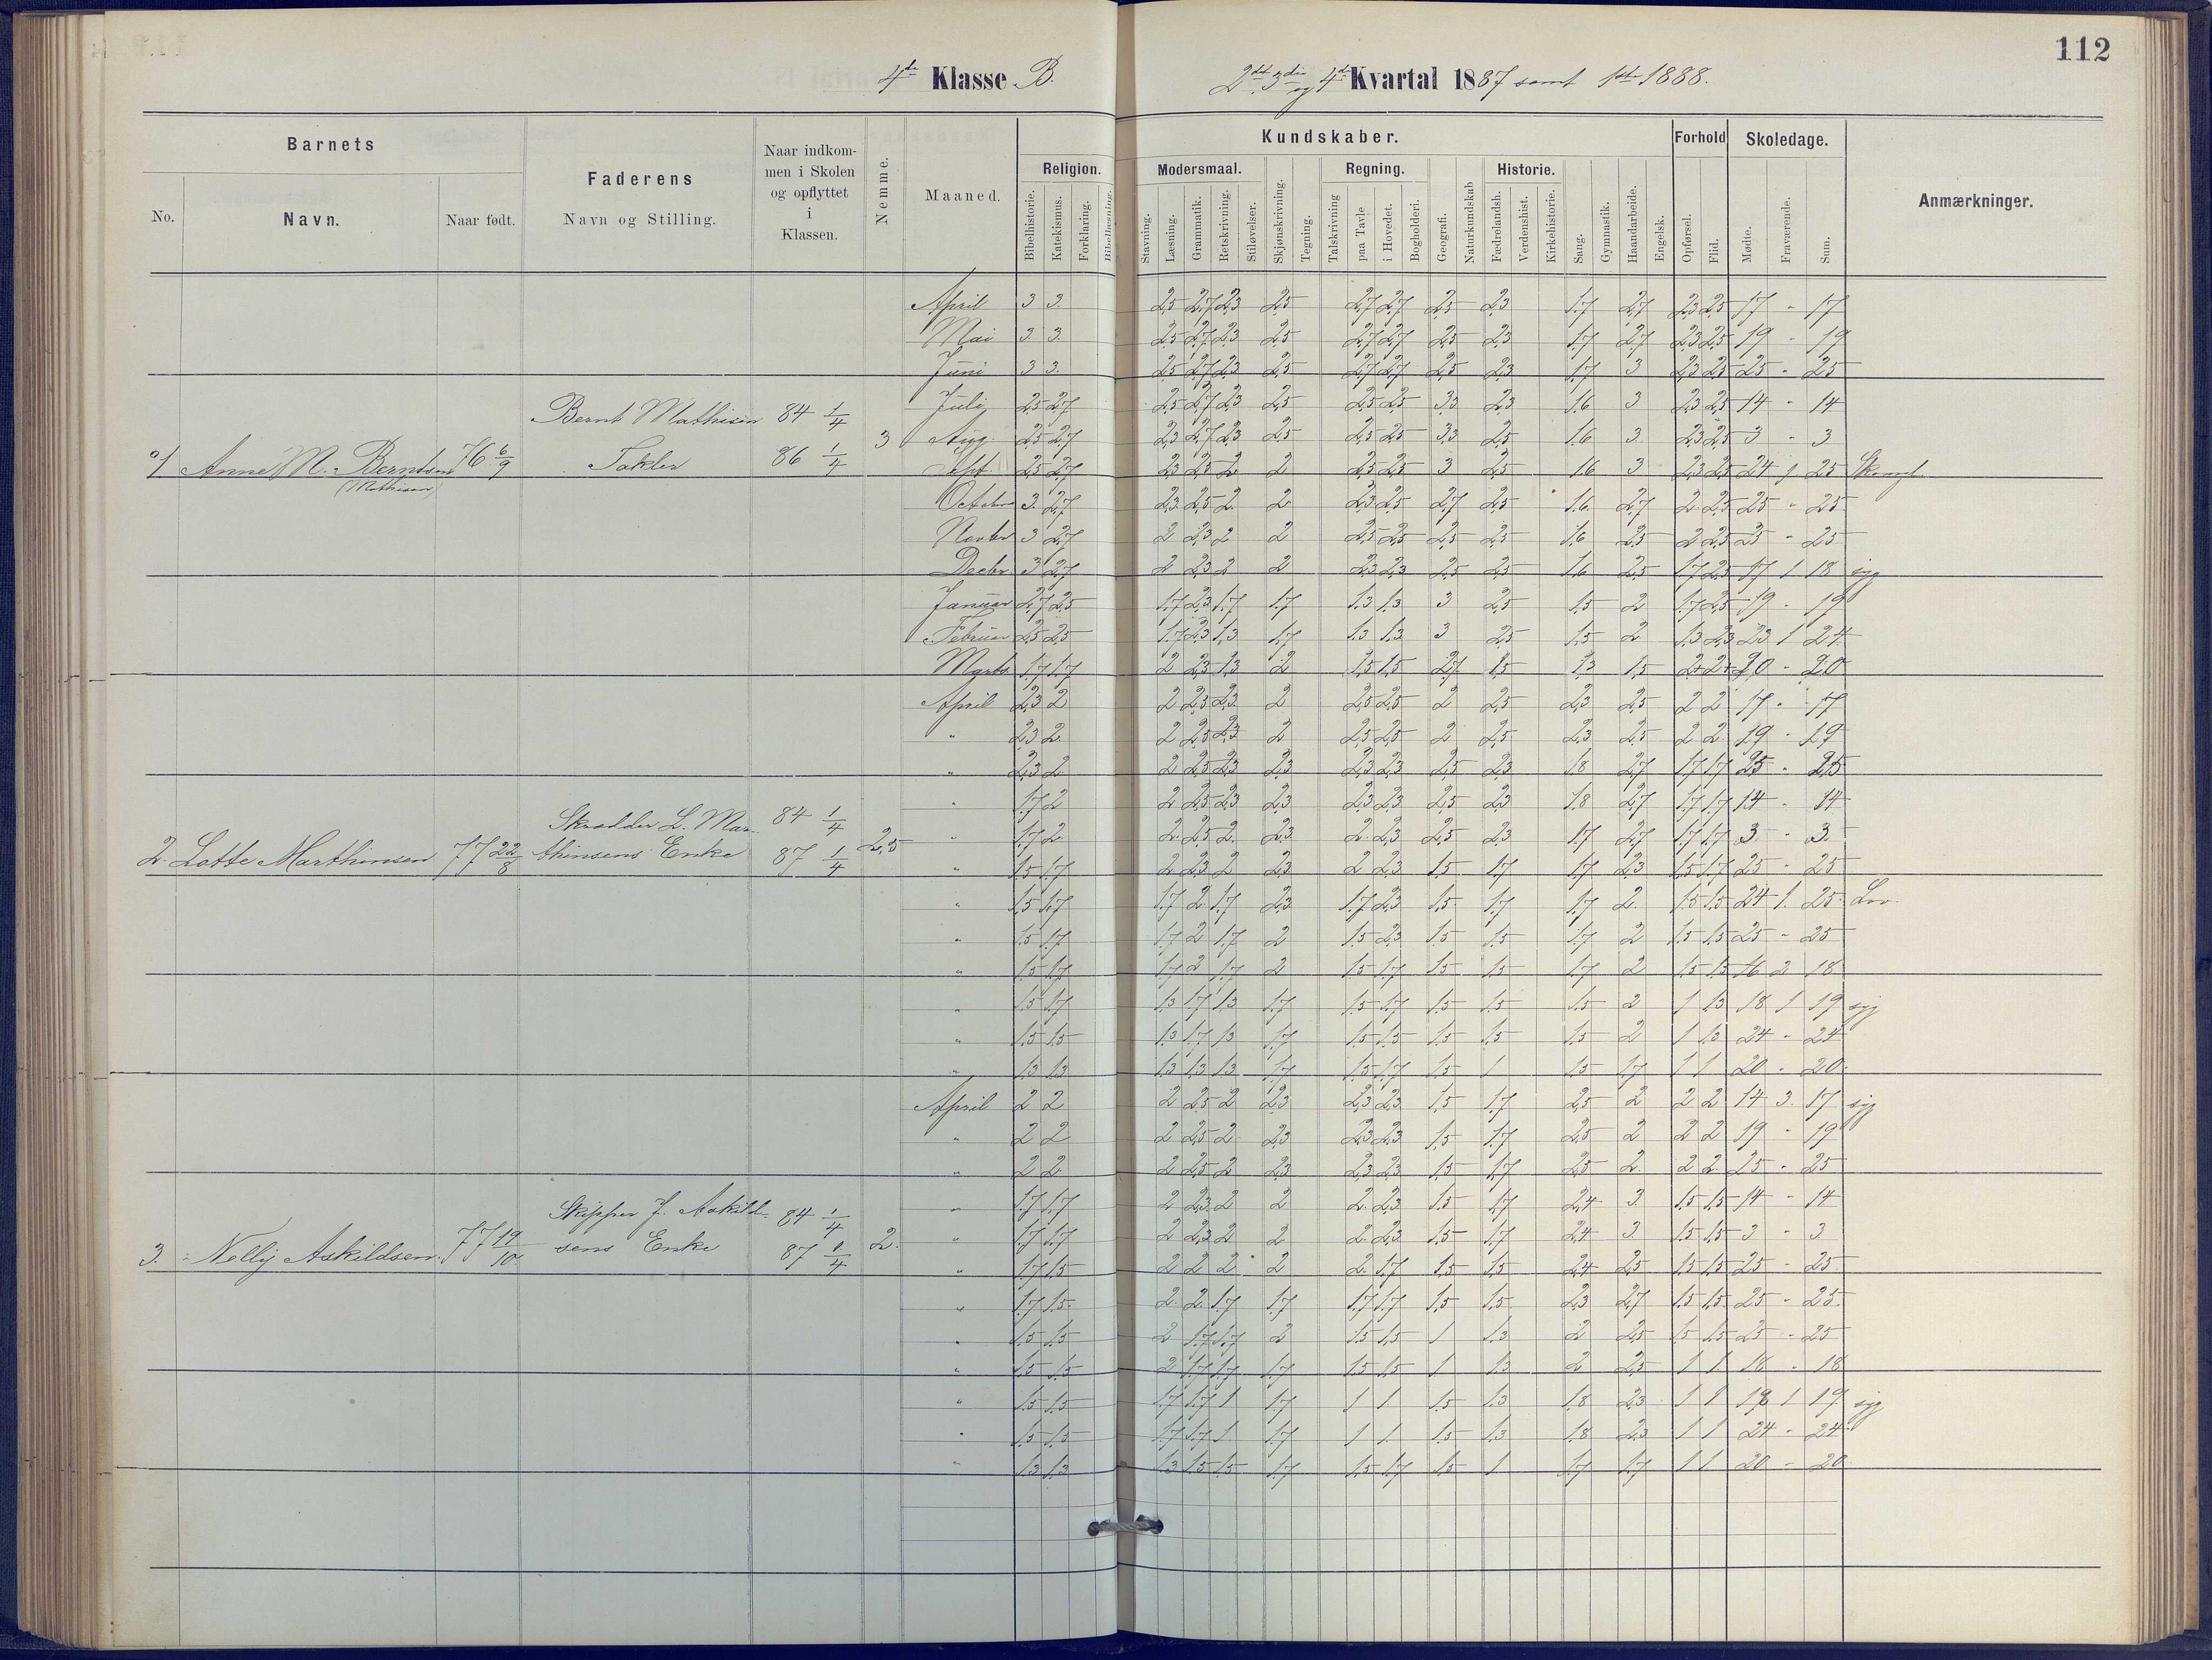 112
4de Klasse B.
2det 3die og 4de Kvartal 1887 samt 1ste 1888.
Barnets
No.
Navn.
Naar født.
Faderens
Navn og Stilling.
Naar indkom-
men i Skolen
og opflyttet
i
Klassen.
Nemme.
Maaned.
Kundskaber.
Religion.
Bibelhistorie.
Katekismus.
Forklaring.
Bibellæsning.
Modersmaal.
Stavning.
Læsning.
Grammatik.
Retskrivning.
Stiløvelser.
Skjønskrivning.
Tegning.
Regning.
Talskrivning
paa Tavle
i Hovedet.
Bogholderi.
Geografi.
Naturkundskab
Historie.
Fædrelandsh.
Verdenshist.
Kirkehistorie.
Sang.
Gymnastik.
Haandarbeide.
Engelsk.
Forhold
Opførsel.
Flid.
Skoledage.
Mødte.
Fraværende.
Sum.
Anmærkninger.
1 Anne M. Berntsen (Mathisen) 76 6/9 Bernt Mathisen Takler 84 1/4 86 1/4 3
April 3 3. 2,5 2,7 2,3 2,5 2,7 2,7 2,5 2,3 1.7 2,7 2,3 2,5 17 - 17
Mai 3. 3. 2,5 2,7 2,3 2,5 2,7 2,7 2,5 2,3 1.7 2,7 2,3 2,5 19 - 19
Juni 3 3. 2,5 2,7 2,3 2,5 2,7 2,7 2,5 2,3 1.7 3 2,3 2,5 25 - 25
Juli 2,5 2,7 2,5 2,7 2,3 2,5 2,5 2,5 3,3 2,3 1.6 3 2,3 2,5 14 - 14
Aug. 2,5 2,7 2,3 2,7 2,3 2,5 2,5 2,5 3,3 2,5 1.6 3 2,3 2,5 3 - 3
Sept. 2,5 2,7 2,3 2,5 2 2 2,5 2,5 3 2,5 1.6 3 2,3 2,5 24 1 25
October 3. 2,7 2,3 2,5 2. 2 2,3 2,5 2,7 2,5 1.6. 2,7 2 2,5 25 - 25
Novbr 3 2,7 2 2,3 2 2 2,5 2,5 2,5 2,5 1,6 2,5 2 2,5 25 - 25
Decbr. 3 2,7 2 2,3 2 2 2,3 2,3 2,5 2,5 1.6 2,5 1.7 2,5 17 1 18 syg
Januar 2,7 2,5 1.7 2,3 1.7 1.7 1.3 1.3 3 2,5 1.5 2 1.7 2,5 19 - 19
Februar 2,5 2,5 1.7 2,3 1.3 1.7 1.3 1.3 3 2,5 1.5 2 1.3 2,3 23 1 24
Marts 1.7 1.7 2 2,3 1.3 2 1.5 1.5 2,7 1.5 1.3 1.5 2+ 2+ 20 - 20
2. Lotte Marthinsen 77 22/8 Skrædder L. Mar- thinsens Enke 84 1/4 87 1/4 2,5
April 2,3 2 2 2,5 2,3 2 2,5 2,5 2 2,5 2,3 2,5 2 2 17 - 17
" 2,3 2. 2 2,5 2,3 2 2,5 2,5 2 2,5 2,3 2,5 2 2 19 - 19
" 2,3 2 2 2,5 2,3 2,3 2,3 2,3 2,5 2,3 1.8 2,7 1.7 1.7 25 - 25
" 1.7 2 2 2,5 2,3 2,3 2,3 2,3 2,5 2,3 1.8 2,7 1.7 1.7 14 - 14
" 1.7 2 2. 2,5 2. 2,3 2. 2,3 2,5 2,3 1.7 2,7 1.7 1.7 3. - 3.
" 1.5 1.7 2 2,3 2 2,3 2 2,3 1.5 1.7 1.7 2,3 1.5 1.7 25 - 25
" 1.5 1.7 1.7 2 1.7 2,3 1.7 2,3 1.5 1.7 1.7 2. 1.5 1.5 24 1. 25 Lov.
" 1.5 1.7 1.7 2 1.7 2 1.5 2,3 1.5 1.5 1.7 2 1.5 1.5 25 - 25
" 1.5 1.7 1.7 2 1.7 2 1.5 1.7 1.5 1.5 1.7 2 1.5 1.5 16 2 18
" 1.5 1.7 1.3 1.7 1.3 1.7 1.5 1.7 1.5 1.5 1.5 2 1 1.3 18 1 19 syg
" 1.5 1.5 1.3 1.7 1.3 1.7 1.5 1.5 1.5 1.5 1.5 2 1 1.3 24 - 24
" 1.3 1.3 1.3 1.3 1.3 1.7 1.5 1.7 1.5 1 1.5 1.7 1 1 20 - 20.
3. Nelly Askildsen 77 19/10 Skipper J. Askild- sens Enke 84 1/4 87 1/4 2.
April 2 2 2 2,5 2 2,3 2,3 2,3 1.5 1.7 2,5 2 2 2 14 3. 17 syg
" 2 2 2 2,5 2 2,3 2,3 2,3 1.5 1.7 2,5 2 2 2 19 - 19
" 2 2 2 2,5 2 2,3 2,3 2,3 1.5 1.7 2,5 2. 2 2 25 - 25
" 1.7 1.7 2 2,3 2 2 2. 2,3 1.5 1.7 2,4 3 1.5 1.5 14 - 14
" 1.7 1.7 2 2,3 2 2 2. 2,3 1.5 1.7 2,4 3. 1.5 1.5 3 - 3
" 1.7 1.5 2 2 2 2 2. 1.7 1.5 1.5 2,4 2,5 1.5 1.5 25 - 25
" 1.7 1.5 2. 2. 1.7 1.7 1.7 1.7 1.5 1.5 2,3 2,7 1.5 1.5 25 - 25
" 1.5 1.5 2 1.7 1.7 2 1.5 1.5 1 1.3 2 2,5 1.5 1.5 25 - 25
" 1.5 1.5 2 1.7 1.7 1.7 1.5 1.5 1 1.3 2 2,5 1 1 18 - 18
" 1.5 1.5 1.7 1.7 1 1.7 1 1 1.5 1.3 1.8 2,3 1 1 18 1 19 syg
" 1.5 1.5 1.7 1.7 1 1.7 1 1 1.5 1.3 1.8 2,3 1 1 24 - 24
" 1.3 1.3 1.3 1.5 1.5 1.7 1.5 1.7 1.5 1 1.7 1.7 1 1 20 - 20